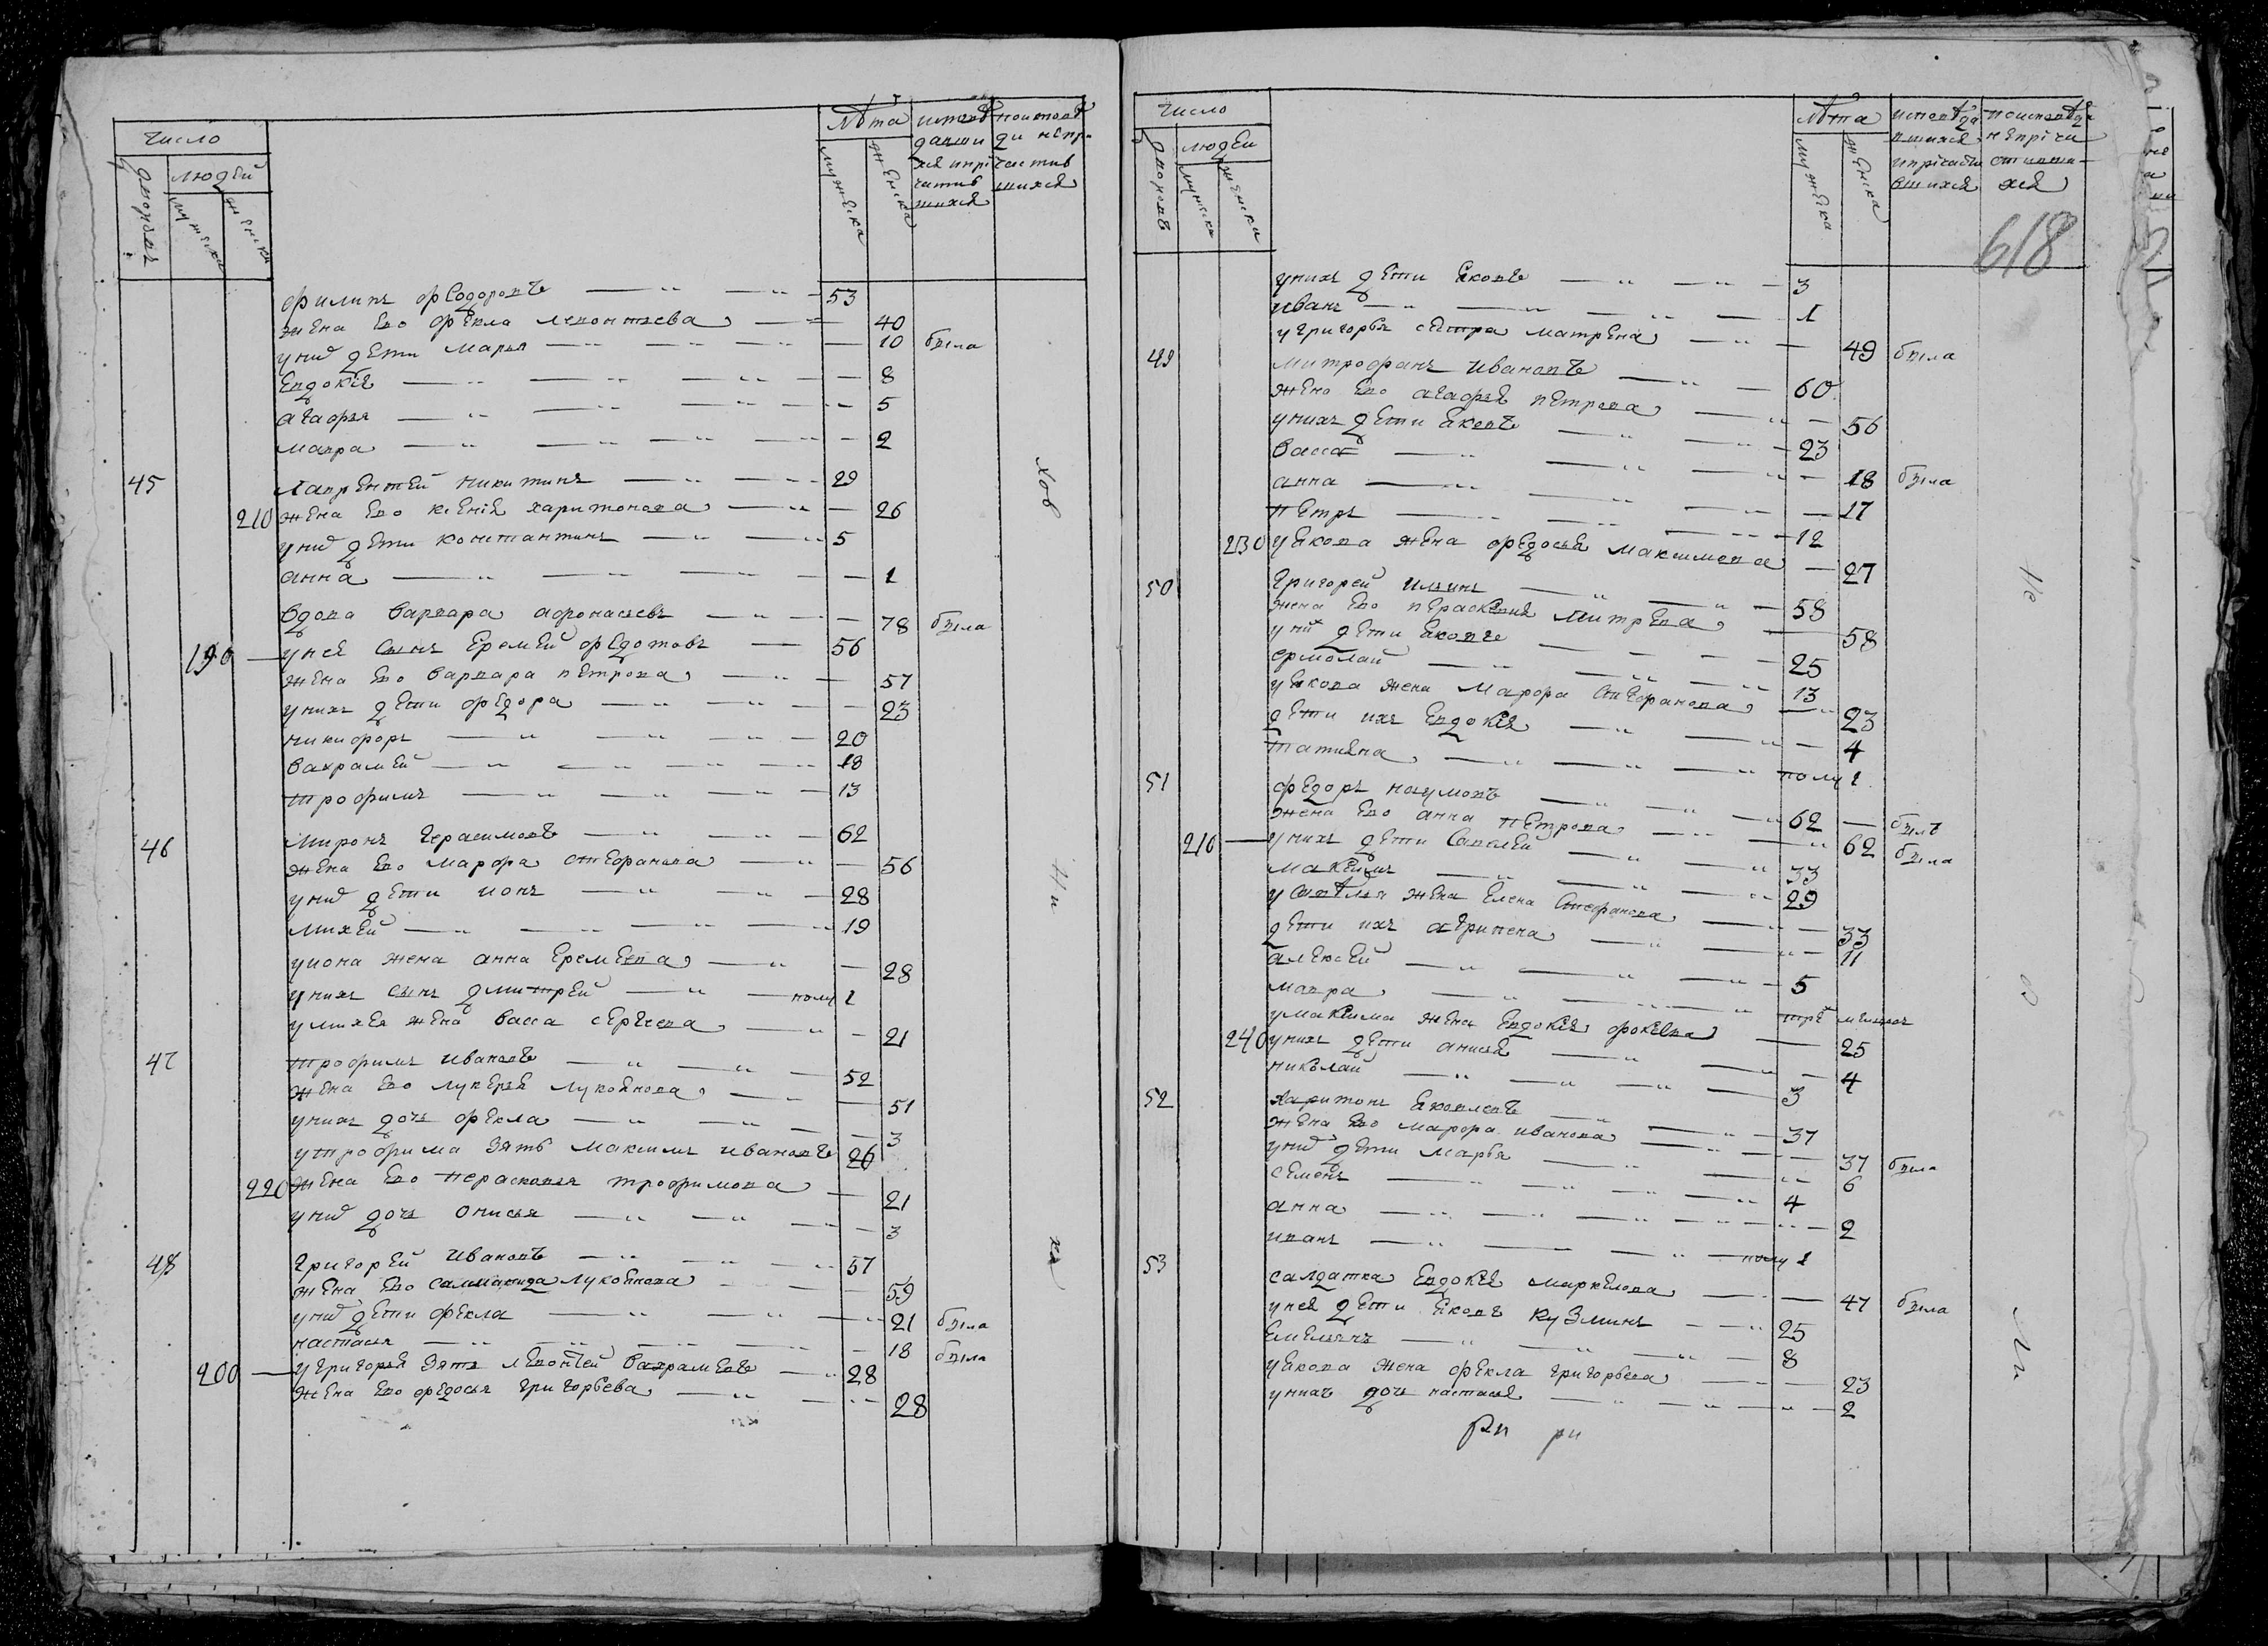 Число
людей
дворовъ
мужеска
женска
лѣта
мужеска
женска
исповѣ
давши
хся и при
частив
шихся
по исповѣ
ди не при
частив
шихся
Филипъ Федоровъ 53
жена ево Фекла Левонтьева 40
у них дети Марья 10 была
Евдокѣя 8
Агафья 5
Мавра 2
45 Лаврентей Никитинъ 29
210 жена ево Ксенія Харитонова 26
у них дети Константинъ 5
Анна 1
вдова Варвара Афонасьевъ 78 была
190 у нея сынъ Еремей Федотовъ 56
жена ево Варвара Петрова 57
у нихъ дети Федора 23
Никифоръ 20
Вахрамей 18
Трофимъ 13
46 Миронъ Герасимовъ 62
жена ево Марфа Стефанова 56
у них дети Ионъ 28
Михей 19
у Иона жена Анна Еремеева 28
у нихъ сынъ Дмитрей полу 1
у Михея жена Васса Сергеева 21
47 Трофимъ Ивановъ 52
жена ево Лукерья Лукоянова 51
у нихъ дочь Фекла 3
у Трофима зять Максимъ Ивановъ 26
220 жена ево Перасковья Трофимова 21
у них дочь Онисья 3
48 Григорей Ивановъ 57
жена ево Лукоянова 59
у них дети Фекла 21 была
Настасья 18 была
200 у Григорья зять Левонтей Вахрамеевъ 28
жена ево Федосья Григорьева 28
Число
людей
дворовъ
мужеска
женска
лѣта
мужеска
женска
исповѣда
вшихся
и причасти
вшихся
по исповѣди
не причи
стивши
хся
618
у нихъ дети Яковъ 3
Иванъ 1
у Григорья сестра Матрена 49 была
49 Митрофанъ Ивановъ 60
жена ево Агафья Петрова 56
у нихъ дети Яковъ 23
Васса 18 была
Анна 17
Петръ 12
230 у Якова жена Федосья Максимова 27
50 Григорей Ильинъ 58
жена ево Перасковия Митрева 58
у них дети Яковъ 25
Ермолай 13
у Якова жена Марфа Стефанова 23
дети ихъ Евдокея 4
Татияна полу 1
51 Федоръ Наумовъ 62 былъ
жена ево Анна Петрова 62 была
210 у нихъ дети Савелей 33
Максимъ 29
у Савѣлья жена Елена Стефанова 33
дети ихъ Агрипена 11
Алексей 5
Мавра
у Максима жена Евдокея Фокеева 25
240 у нихъ дети Анисья 4
Николай 3
52 Харитонъ Яковлевъ 37
жена ево Марфа Иванова 37 была
у них дети Марья 6
Семенъ 4
Анна 2
Иванъ полу 1
53 салдатка Евдокея Маркелова 47 была
у нея дети Яковъ Кузминъ 25
Емельянъ 8
у Якова жена Фекла Григорьева 23
у нихъ дочь Настасья 2